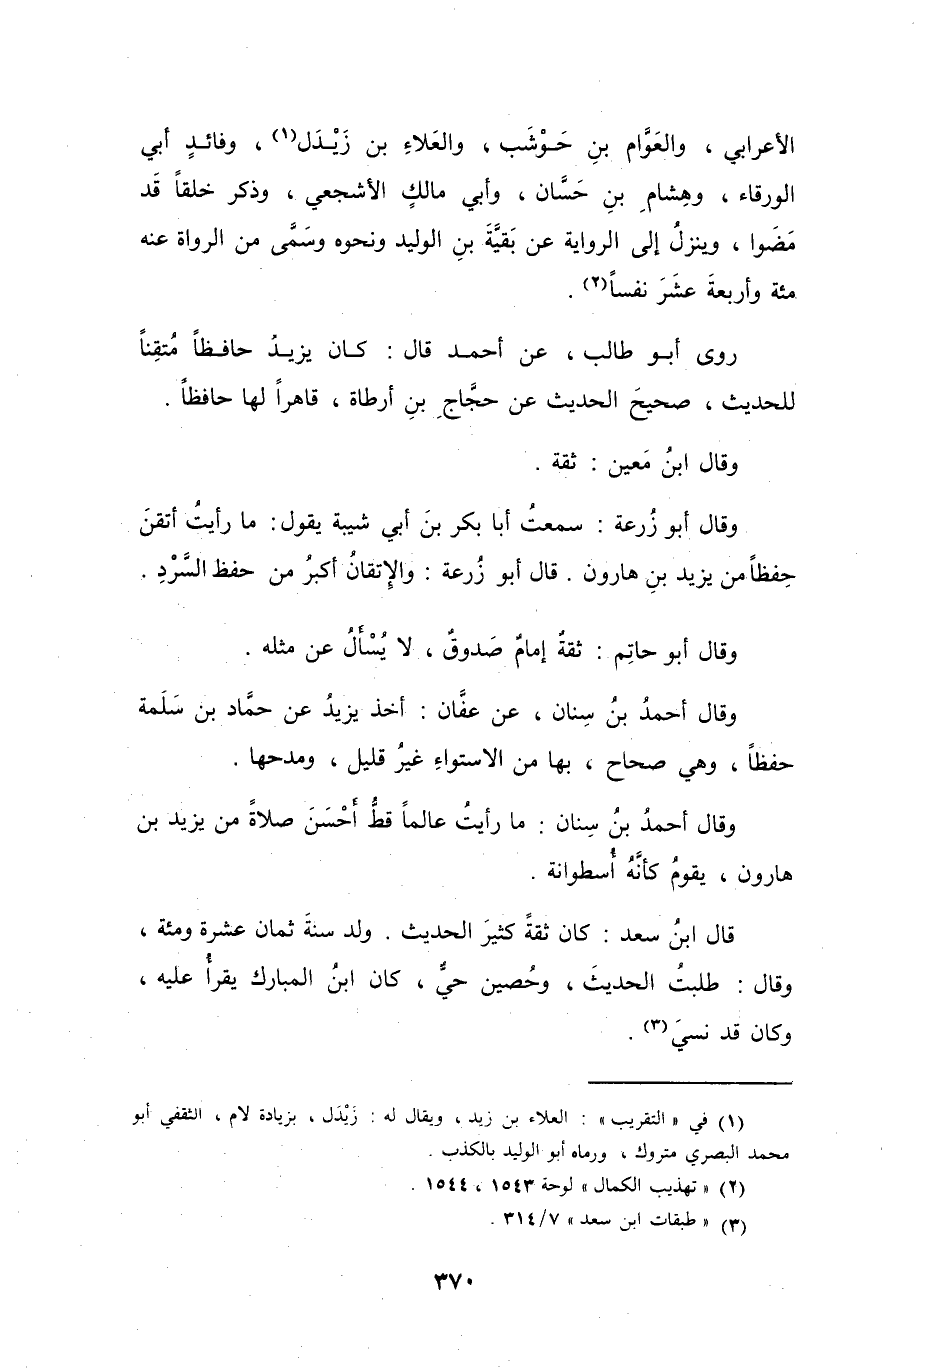 الأعرابي ، والعَوَّام بنِ حَـوْشَب ، والعَلاءِ بن زَيْـدَل(١) ، وفائـدٍ أبي
الورقاء ، وهِشامِ بنِ حَسَّان ، وأبي مالكٍ الأشجعي ، وذكر خلقاً قَد
مَضَوا ، وينزلُ إلى الرواية عن بَقيَّةَ بنِ الوليد ونحوه وسَمَّى من الرواة عنه
مئة وأربعةَ عشَرَ نفساً(٢) .
روى أبـو طالب ، عن أحمـد قال : كـان يزيـدُ حافـظاً مُتقِناً
للحديث ، صحيحَ الحديث عن حجَّاجِ بنِ أرطاة ، قاهراً لها حافظاً .
وقال ابنُ مَعين : ثقة .
وقال أبو زُرعة : سمعتُ أبا بكر بنَ أبي شيبة يقول : ما رأيتُ أتقنَ
حِفظاً من يزيد بنِ هارون . قال أبو زُرعة : والإِتقانُ أكبرُ من حفظ السَّرْدِ .
وقال أبو حاتِم : ثقةٌ إمامٌ صَدوقٌ ، لا يُسْأَلُ عن مثله .
وقال أحمدُ بنُ سِنان ، عن عفَّان : أخذ يزيدُ عن حمَّاد بن سَلَمة
حفظاً ، وهي صحاح ، بها من الاستواءِ غيرُ قليل ، ومدحها .
وقال أحمدُ بنُ سِنان : ما رأيتُ عالماً قطُّ أَحْسَنَ صلاةً من يزيد بن
هارون ، يقومُ كأنَّهُ أُسطوانة .
قال ابنُ سعد : كان ثقةً كثيرَ الحديث . ولد سنةَ ثمان عشرة ومئة ،
وقال : طلبتُ الحديثَ ، وحُصين حيٌّ ، كان ابنُ المبارك يقرأُ عليه ،
وكان قد نسيَ(٣) .
(١) في « التقريب » : العلاء بن زيد ، ويقال له : زَيْدَل ، بزيادة لام ، الثقفي أبو
محمد البصري متروك ، ورماه أبو الوليد بالكذب .
(٢) « تهذيب الكمال » لوحة ١٥٤٣ ، ١٥٤٤ .
(٣) « طبقات ابن سعد » ٣١٤/٧ .
٣٧٠